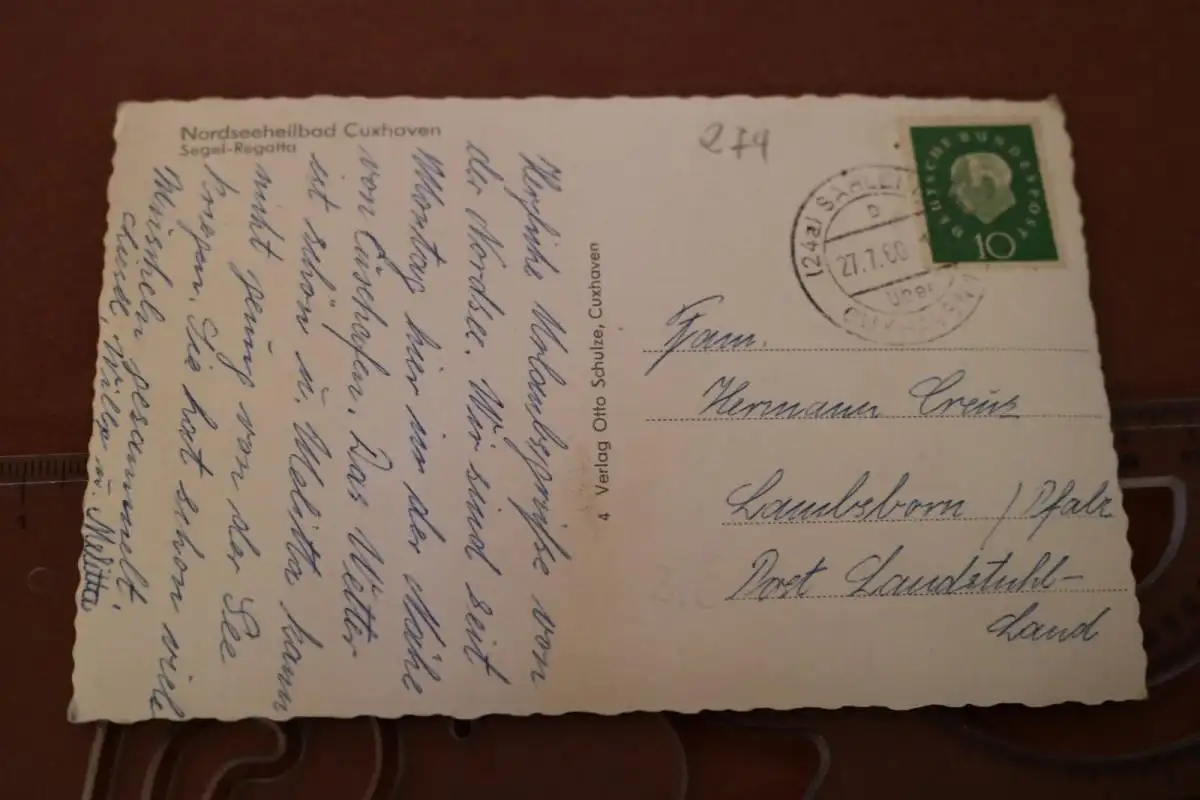 Nordseeheilbad Cuxhaven
Segel-Regatta
Herzliche Urlaubsgrüße von
der Nordsee. Wir sind seit
Montag hier in der Nähe
von Cuxhafen. Das Wetter
ist schön u. Melitta kann
nicht genug von der See
kriegen. Sie hat schon viele
Muscheln gesammelt.
Willy u. Melitta
4 Verlag Otto Schulze, Cuxhaven
274
DEUTSCHE BUNDESPOST
10
(24a) SAHLEN
b
27.7.60
über
CUXHAVEN
Fam.
Hermann Creuz
Lambsborn / Pfalz
Post Landstuhl-
Land